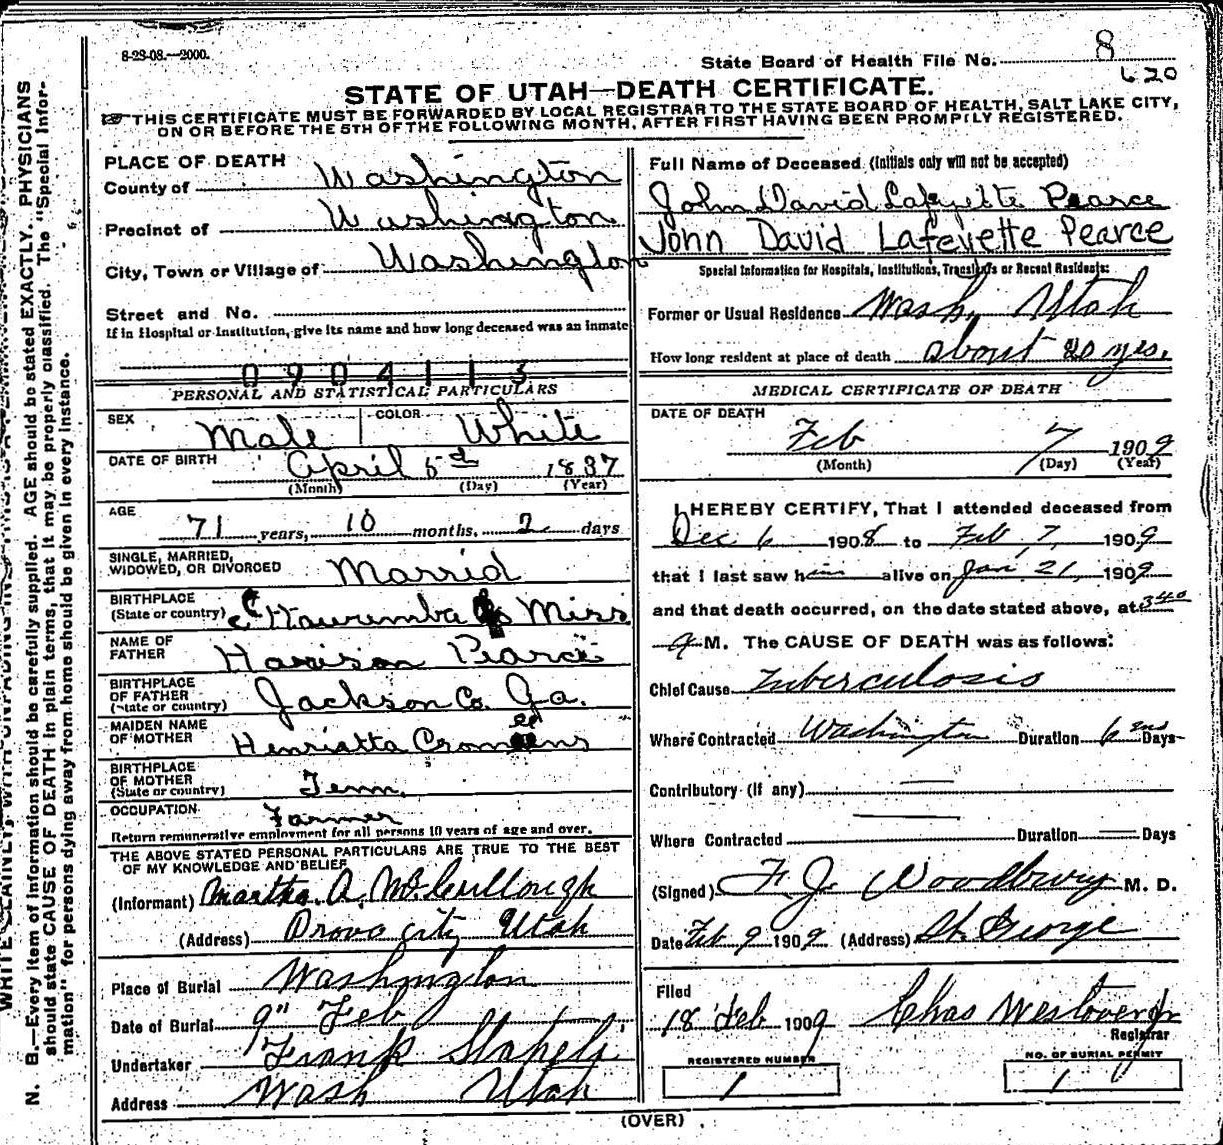 8-28-08.—2000.
State Board of Health File No. 8
620
STATE OF UTAH—DEATH CERTIFICATE.
THIS CERTIFICATE MUST BE FORWARDED BY LOCAL REGISTRAR TO THE STATE BOARD OF HEALTH, SALT LAKE CITY,
ON OR BEFORE THE 5TH OF THE FOLLOWING MONTH, AFTER FIRST HAVING BEEN PROMPTLY REGISTERED.
PLACE OF DEATH
County of Washington
Precinct of Washington
City, Town or Village of Washington
Street and No.
If in Hospital or Institution, give its name and how long deceased was an inmate
0904113
PERSONAL AND STATISTICAL PARTICULARS
SEX Male COLOR White
DATE OF BIRTH April 5th 1837
(Month) (Day) (Year)
AGE 71 years, 10 months, 2 days
SINGLE, MARRIED,
WIDOWED, OR DIVORCED Marrid
BIRTHPLACE
(State or country) Miss
NAME OF
FATHER Harrison Pearce
BIRTHPLACE
OF FATHER
(State or country) Jackson Co. Ga.
MAIDEN NAME
OF MOTHER Henriatta
BIRTHPLACE
OF MOTHER
(State or country) Tenn.
OCCUPATION Farmer
Return remunerative employment for all persons 10 years of age and over.
THE ABOVE STATED PERSONAL PARTICULARS ARE TRUE TO THE BEST
OF MY KNOWLEDGE AND BELIEF
(Informant) Martha A. McCullough
(Address) Provo City Utah
Place of Burial Washington
Date of Burial 9" Feb
Undertaker Frank
Address Wash Utah
Full Name of Deceased (Initials only will not be accepted)
John David Lafayette Pearce
John David Lafeyette Pearce
Special Information for Hospitals, Institutions, Transients or Recent Residents:
Former or Usual Residence Wash, Utah
How long resident at place of death about yrs.
MEDICAL CERTIFICATE OF DEATH
DATE OF DEATH
Feb 7 1909
(Month) (Day) (Year)
I HEREBY CERTIFY, That I attended deceased from
Dec 6 1908 to Feb 7, 1909
that I last saw him alive on Jan 21, 1909
and that death occurred, on the date stated above, at 3 40
a M. The CAUSE OF DEATH was as follows:
Chief Cause Tuberculosis
Where Contracted Washington Duration 6 Days
Contributory (If any) —
Where Contracted — Duration — Days
(Signed) F. J. Woodbury M. D.
Date Feb 9 1909 (Address) St. George
Filed
18 Feb 1909 Chas Westover Jr
Registrar
REGISTERED NUMBER
1
NO. OF BURIAL PERMIT
1
(OVER)
N. B.—Every item of information should be carefully supplied. AGE should be stated EXACTLY. PHYSICIANS
should state CAUSE OF DEATH in plain terms, that it may be properly classified. The "Special Infor-
mation" for persons dying away from home should be given in every instance.